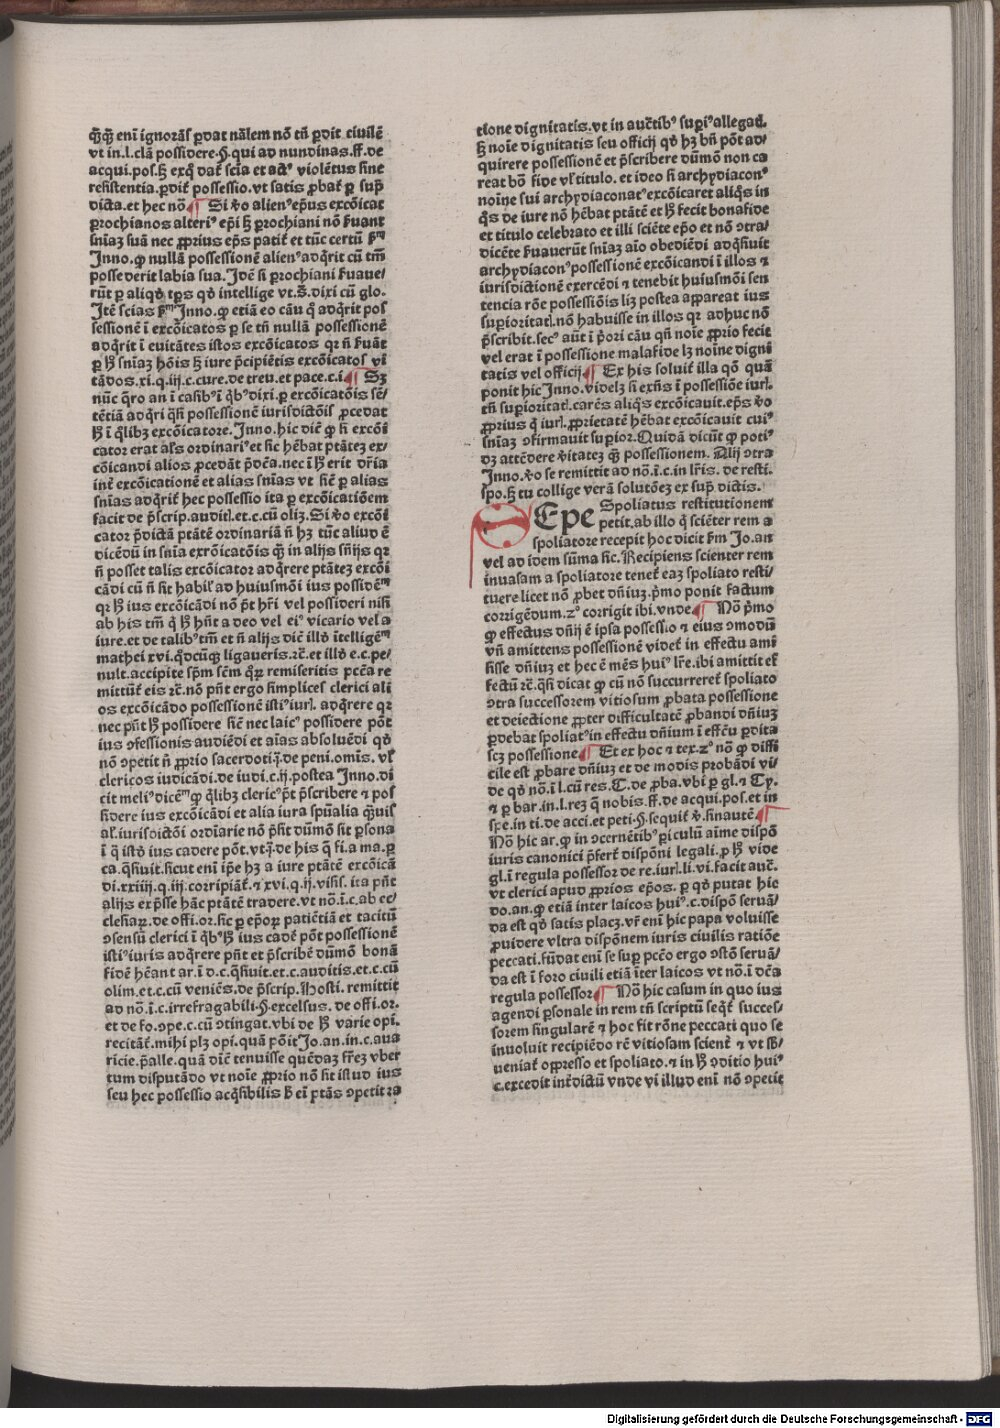 q̃q̃ eni ignorãs ꝑdat nãlem nõ tñ ꝑdit ciuilẽ
vt in.l.clã possidere.§.qui ad nundinas.ff.de
acqui.pos.
resistentia.ꝑdit̃ possessio.vt satis ꝓbat̃ ꝑ sup̃
dicta.et hec nõ ¶ Si ꝟo alienꝰ ep̃us excõicat
ꝑrochianos alteriꝰ ep̃i
sñiaꝫ suã nec ꝓprius ep̃s patit̃ et tũc certũ
Inno.ꝙ nullã possessionẽ alienꝰ adq̃rit cũ tm̃
posse deꝛit labia sua.Idẽ si ꝑrochiani
rũt ꝑ aliqḋ tp̃s qḋ intellige vt.s̃.dixi cũ glo.
Itẽ scias
sessionẽ ĩ excõicatos ꝑ se tñ nullã possessionẽ
adq̃rit ĩ euitãtes istos excõicatos qꝛ ñ
excõicatos vi
tãdos.xi.q.iij.c.cure.de treu.et pace.c.i. ¶ Sꝫ
nũc q̃ro an ĩ casibꝰ ĩ q̃bꝰ dixi.ꝑ excõicatõis sẽ
tẽtiã adq̃ri q̃si possessionẽ iurisdictõis ꝓcedat
ĩ q̃libꝫ excõicatore.Inno.hic dic̃ ꝙ si excõi
cator erat al̃s ordinariꝰ et sic hẽbat ptãteꝫ ex/
cõicandi alios ꝓcedãt
int̃ excõicationẽ et alias sñias vt sic̃ ꝑ alias
sñias adq̃rit̃ hec possessio ita ꝑ excõicatiõem
facit de p̃scrip.audit̃.et.c.cũ oliꝫ.Si ꝟo excõi
cator p̃dictã ptãtẽ ordinariã ñ hꝫ tũc aliud ẽ
dicẽdũ in sñia excõicatõis q̃ in alijs sñijs qꝛ
ñ posset talis excõicator adq̃rere ptãteꝫ excõi
cãdi cũ ñ sit habil̃ ad huiusmõi ius possidẽ
ius excõicãdi nõ p̃t hr̃i vel possideri nisi
ab his tm̃
iure.et de talibꝰ tm̃ et ñ alijs dic̃ illḋ ĩtelligẽ
mathei xvi.q̃dcũqꝫ ligaueris.ꝛc̃.et illḋ e.c.pe/
nult.accipite sp̃m sc̃m q̃ꝝ remiseritis pctã re
mittũt̃ eis ꝛc̃.nõ pñt ergo simplices clerici ali
os excõicãdo possessionẽ istiꝰ iur̃.adq̃rere qꝛ
possidere sic̃ nec laicꝰ possidere põt
ius ↄfessionis audiẽdi et aĩas absoluẽdi qḋ
nõ ↄpetit ñ ꝓprio sacerdoti.j̃.de peni.omĩs.vl̃
clericos iudicãdi.de iudi.c.ij.postea Inno.di
cit meliꝰ dicẽ ꝙ q̃libꝫ clericꝰ p̃t p̃scribere ⁊ pos
sidere ius excõicãdi et alia iura spũalia q̃uis
al̃.iurisdictõi ordĩarie nõ p̃sit dũmõ sit ꝑsona
ĩ q̃ istḋ ius cadere põt.
ca.q̃siuit.sicut eni ip̃e hꝫ a iure ptãtẽ excõicã
di.xxiiij.q.iij.corripiãt̃.⁊ xvi.q.ij.visis. ita pñt
alijs exp̃sse hãc ptãtẽ tradere.vt nõ.ĩ.c.ab ec/
clesiaꝝ.de offi.or.sic ꝑ ep̃oꝝ patiẽtiã et tacitũ
ↄsensũ clerici ĩ
istiꝰ iuris adq̃rere pñt et p̃scribẽ dũmõ bonã
fidẽ hẽant ar.ĩ d.c.q̃siuit.et.c.auditis.et.c.cũ
olim.et.c.cũ veniẽs.de p̃scrip.Hosti.remittit
ad nõ.ĩ.c.irrefragabili.§.excelsus.de offi.or.
et de fo.ↄpe.c.cũ ↄtingat.vbi de
recitãt̃.mihi plꝫ opi.quã põit Jo.an.in.c.aua
ricie.p̃alle.quã dic̃ tenuisse quẽdaꝫ fr̃eꝫ vber
tum disputãdo vt noĩe ꝓprio nõ sit istud ius
seu hec possessio acq̃sibilis
tione dignitatis.vt in auctibꝰ supꝛiꝰ allegaḋ.
noĩe dignitatis seu officij qḋ hꝫ bñ põt ad/
quirere possessionẽ et p̃scribere dũmõ non ca
reat bõ fide vl̃ titulo. et ideo si archydiaconꝰ
noĩne sui archydiaconatꝰ excõicaret aliq̃s in
q̃s de iure nõ hẽbat ptãtẽ et
et titulo celebrato et illi sciẽte ep̃o et nõ ↄtra/
dicẽte
archydiaconꝰ possessionẽ excõicandi ĩ illos ⁊
iurisdictionẽ exercẽdi ⁊ tenebit huiusmõi sen
tencia rõe possessiõis lꝫ postea appareat ius
superioritat̃.nõ habuisse in illos qꝛ adhuc nõ
p̃scribit.secꝰ aũt ĩ p̃ori cãu qñ noĩe ꝓprio fecit
vel erat ĩ possessione malafide lꝫ noĩne digni
tatis vel officij ¶ Ex his soluit̃ illa qõ quã
ponit hic Inno.videlꝫ si exñs ĩ possessiõe iur̃.
tñ superioritat̃.carẽs aliq̃s excõicauit.ep̃s ꝟo
ꝓprius q̃ iur̃.ꝓprietatẽ hẽbat excõicauit cuiꝰ
sñiaꝫ ↄfirmauit superior.Quidã dicũt ꝙ potiꝰ
dꝫ attẽdere ꝟitateꝫ q̃ꝫ possessionem. Alij ↄtra
Inno.ꝟo se remittit ad nõ.ĩ.c.in lr̃is. de resti.
spo.
SEpe Spoliatus restitutionem
petit.ab illo q̃ sciẽter rem a
spoliatore recepit hoc dicit
vel ad idem sũma sic.Recipiens scienter rem
inuasam a spoliatore tenet̃ eaꝫ spoliato resti/
tuere licet nõ ꝓbet dñiuꝫ.p̃mo ponit factum
corrigẽdum.zͦ corrigit ibi.vnde ¶ Nõ p̃mo
ꝙ effectus dñij ẽ ipsa possessio ⁊ eius ↄmodũ
vñ amittens possessionẽ videt̃ in effectu ami
sisse dñiuꝫ et hec ẽ mẽs huiꝰ lr̃e.ibi amittit ef
fectũ ꝛc̃.q̃si dicat ꝙ cũ nõ succurreret̃ spoliato
ↄtra successorem vitiosum ꝓbata possessione
et deiectione ꝓpter difficultatẽ ꝓbandi dñiuꝫ
ꝑdebat spoliatꝰ in effectu dñium ĩ effcũ ꝑdita
scꝫ possessione ¶ Et ex hoc ⁊ tex.zͦ nõ ꝙ diffi
cile est ꝓbare dñiuꝫ et de modis probãdi vi/
de qḋ nõ.ĩ l.cũ res.C.de ꝓba.vbi ꝑ gl.⁊ Cy.
⁊ ꝑ bar.in.l.reꝫ q̃ nobis.ff.de acqui.pos.et in
spe.in ti.de acci.et peti.§.sequit̃ ꝟ.sinautẽ ¶
Nõ hic ar.ꝙ in ↄcernẽtibꝰ ꝑiculũ aĩme dispõ
iuris canonici p̃fert̃ dispõni legali.
gl.ĩ regula possessor de re.iur̃.li.vi.facit auc̃.
vt clerici apud ꝓprios ep̃os. ꝑ qḋ putat hic
do.an.ꝙ etiã inter laicos huiꝰ.c.dispõ seruã/
da est qḋ satis placꝫ.vr̃ eni hic papa voluisse
ꝓuidere vltra dispõnem iuris ciuilis ratiõe
peccati.fũdat eni se suꝑ pctõ ergo ↄstõ seruã/
da est ĩ foro ciuili etiã ĩter laicos vt nõ.ĩ dc̃a
regula possessor ¶ Nõ hic casum in quo ius
agendi ꝑsonale in rem tñ scriptũ seq̃t̃ succes/
sorem singularẽ ⁊ hoc fit rõne peccati quo se
inuoluit recipiẽdo rẽ vitiosam scient̃ ⁊ vt
ueniat̃ oppresso et spoliato.⁊ in
c.excedit int̃dictũ vnde vi illud eni nõ ↄpetit
Digitalisierung gefördert durch die Deutsche Forschungsgemeinschaft - DFG